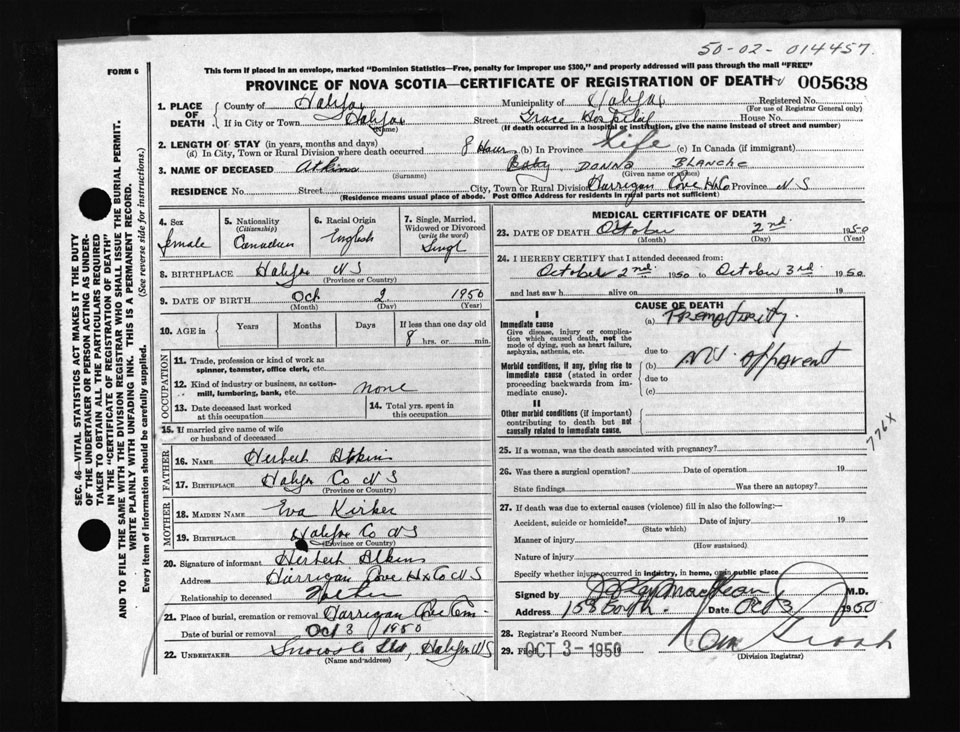 50-02-014457.
FORM 6
This form if placed in an envelope, marked "Dominion Statistics—Free, penalty for improper use $300," and properly addressed will pass through the mail "FREE"
PROVINCE OF NOVA SCOTIA—CERTIFICATE OF REGISTRATION OF DEATH 005638
SEC. 46—VITAL STATISTICS ACT MAKES IT THE DUTY
OF THE UNDERTAKER OR PERSON ACTING AS UNDER-
TAKER TO OBTAIN ALL THE PARTICULARS REQUIRED
IN THE "CERTIFICATE OF REGISTRATION OF DEATH"
AND TO FILE THE SAME WITH THE DIVISION REGISTRAR WHO SHALL ISSUE THE BURIAL PERMIT.
WRITE PLAINLY WITH UNFADING INK. THIS IS A PERMANENT RECORD.
Every item of information should be carefully supplied. (See reverse side for instructions.)
1. PLACE OF DEATH
County of Halifax Municipality of Halifax Registered No.
(For use of Registrar General only)
If in City or Town Halifax Street Grace Hospital House No.
(Name) (If death occurred in a hospital or institution, give the name instead of street and number)
2. LENGTH OF STAY (in years, months and days)
(a) In City, Town or Rural Division where death occurred 8 Hours (b) In Province Life (c) In Canada (if immigrant)
3. NAME OF DECEASED Atkins Baby DONNA BLANCHE
(Surname) (Given name or names)
RESIDENCE No. Street City, Town or Rural Division Harrigan Cove Hx Co Province N S
(Residence means usual place of abode. Post Office Address for residents in rural parts not sufficient)
4. Sex female
5. Nationality (Citizenship) Canadian
6. Racial Origin English
7. Single, Married, Widowed or Divorced (write the word) Singl
8. BIRTHPLACE Halifax NS
(Province or Country)
9. DATE OF BIRTH Oct 2 1950
(Month) (Day) (Year)
10. AGE in Years Months Days If less than one day old
8 hrs. or min.
OCCUPATION
11. Trade, profession or kind of work as
spinner, teamster, office clerk, etc.
12. Kind of industry or business, as cotton-
mill, lumbering, bank, etc. none
13. Date deceased last worked
at this occupation
14. Total yrs. spent in
this occupation
15. If married give name of wife
or husband of deceased
FATHER
16. NAME Herbert Atkins
17. BIRTHPLACE Halifax Co N S
(Province or Country)
MOTHER
18. MAIDEN NAME Eva Kirker
19. BIRTHPLACE Halifax Co NS
(Province or Country)
20. Signature of informant Herbert Atkins
Address Harrigan Cove Hx Co N S
Relationship to deceased Father
21. Place of burial, cremation or removal Harrigan Cove Cem
Date of burial or removal Oct 3 1950
22. UNDERTAKER Snows Co Ltd, Halifax NS
(Name and address)
MEDICAL CERTIFICATE OF DEATH
23. DATE OF DEATH October 2nd 1950
(Month) (Day) (Year)
24. I HEREBY CERTIFY that I attended deceased from:
October 2nd 1950 to October 3rd 1950
and last saw h alive on 19
CAUSE OF DEATH
I
Immediate cause
Give disease, injury or complica-
tion which caused death, not the
mode of dying, such as heart failure,
asphyxia, asthenia, etc.
(a) Prematurity.
due to
Morbid conditions, if any, giving rise to
immediate cause (stated in order
proceeding backwards from im-
mediate cause).
(b) not apparent
due to
(c)
II
Other morbid conditions (if important)
contributing to death but not
causally related to immediate cause.
776X
25. If a woman, was the death associated with pregnancy?
26. Was there a surgical operation? Date of operation 19
State findings Was there an autopsy?
27. If death was due to external causes (violence) fill in also the following:—
Accident, suicide or homicide? Date of injury 19
(State which)
Manner of injury
(How sustained)
Nature of injury
Specify whether injury occurred in industry, in home, or in public place
Signed by M.D.
Address 158 Date Oct 3 1950
28. Registrar's Record Number
29. Filed OCT 3 - 1950
(Division Registrar)